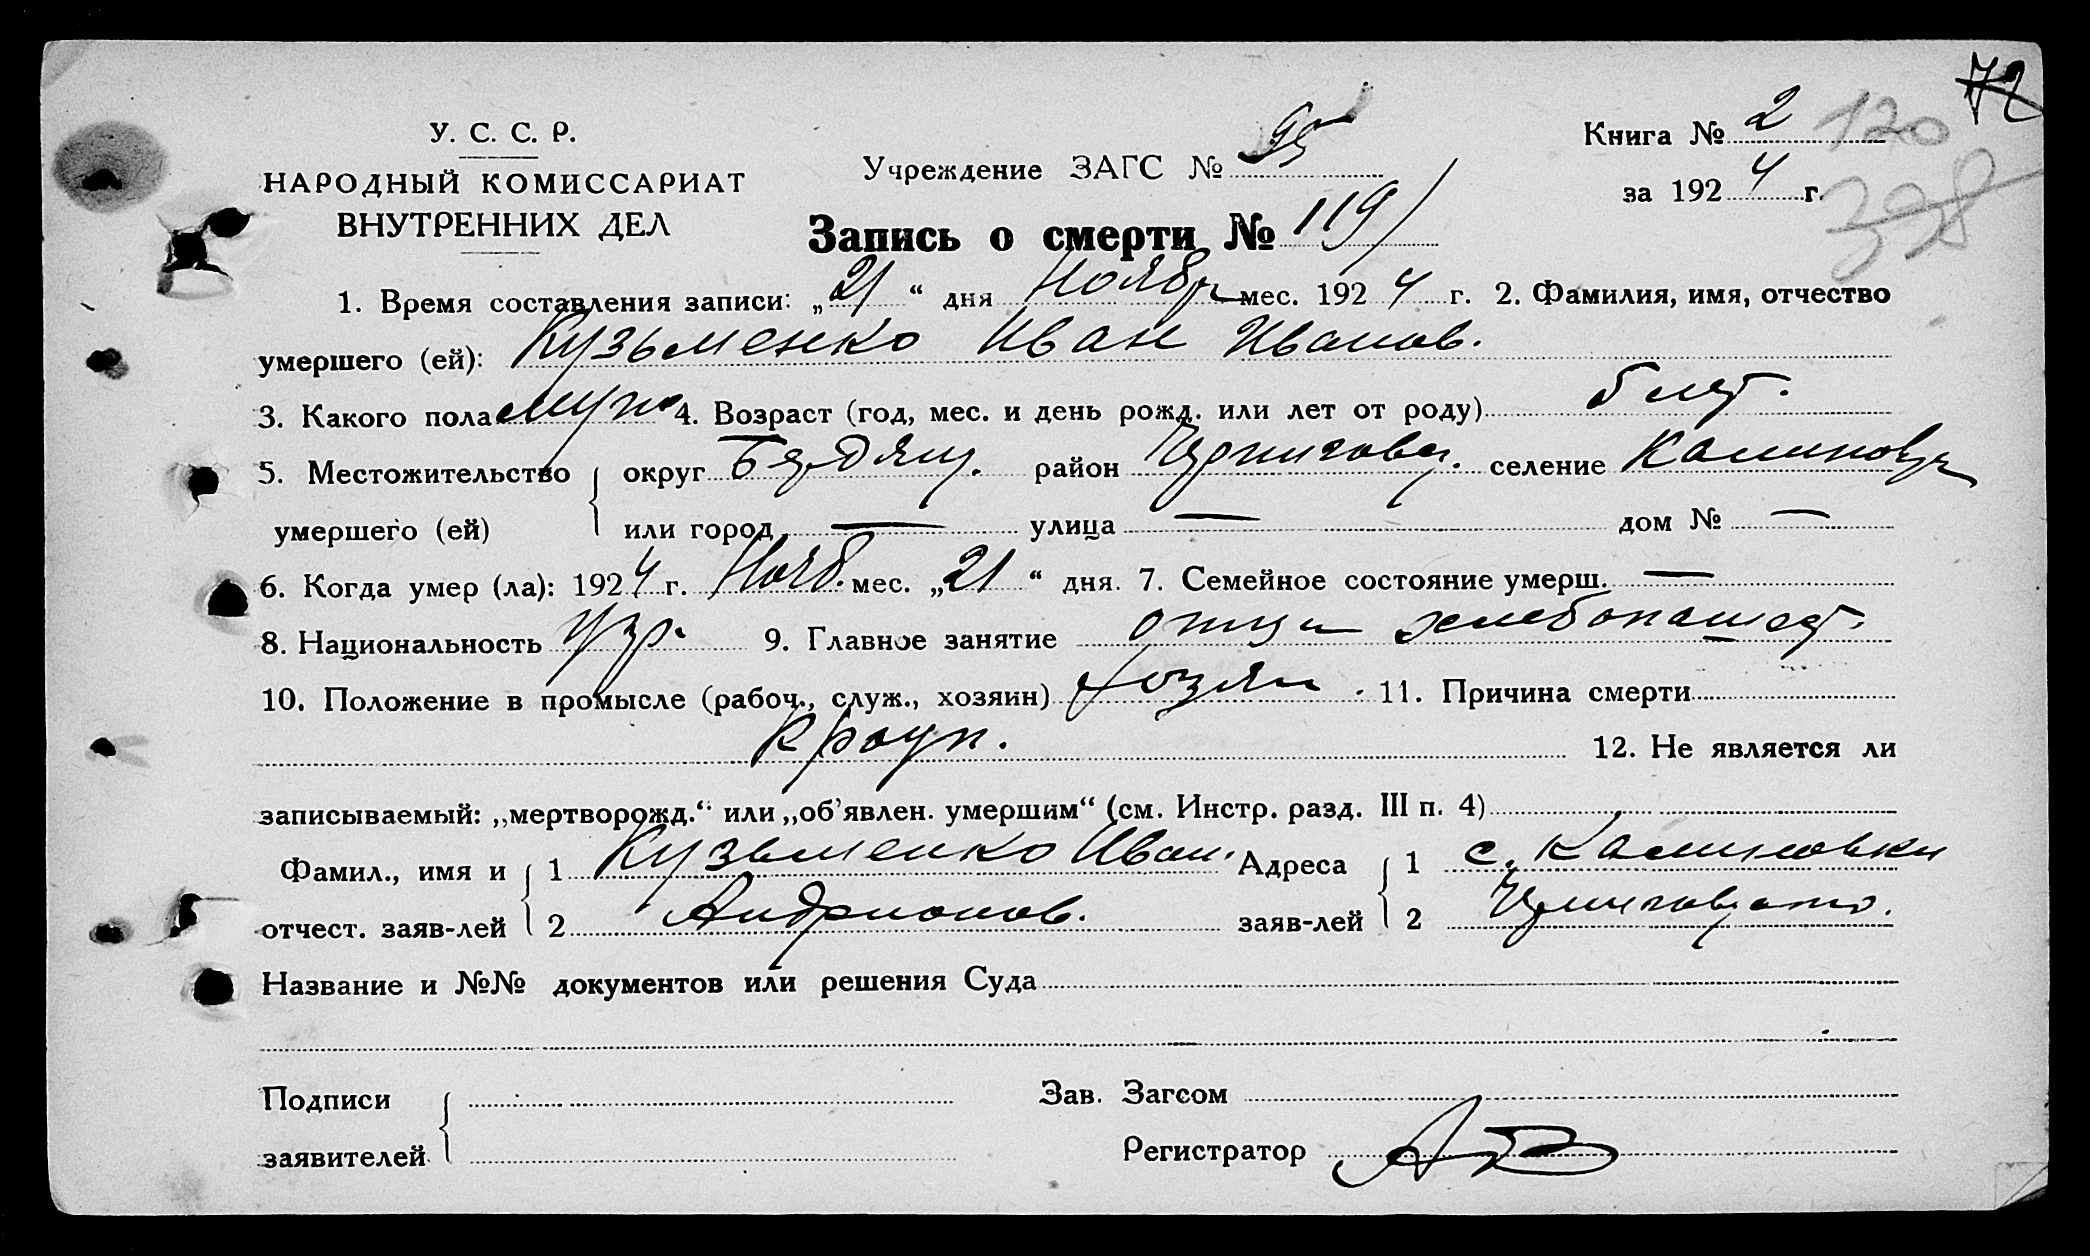 72
У. С. С. Р.
НАРОДНЫЙ КОМИССАРИАТ
ВНУТРЕННИХ ДЕЛ
Учреждение ЗАГС №
Книга № 2 120
за 1924 г. 338
Запись о смерти № 119
1. Время составления записи: „21“ дня Ноябр мес. 1924 г. 2. Фамилия, имя, отчество
умершего (ей): Кузьменко Иван Иванов.
3. Какого пола муж 4. Возраст (год, мес. и день рожд. или лет от роду) 5 лет.
5. Местожительство округ Бердянц. район Черниговец. селение Калиновка
умершего (ей) или город — улица — дом № —
6. Когда умер (ла): 1924 г. Нояб. мес. „21“ дня. 7. Семейное состояние умерш. —
8. Национальность укр. 9. Главное занятие отца хлебопашет.
10. Положение в промысле (рабоч., служ., хозяин) хозяин. 11. Причина смерти
круп.
12. Не является ли
записываемый: „мертворожд.“ или „об'явлен. умершим“ (см. Инстр. разд. III п. 4)
Фамил., имя и 1 Кузьменко Иван. Адреса 1 с. Калиновки
отчест. заяв-лей 2 Андрианов. заяв-лей 2
Название и №№ документов или решения Суда
Подписи Зав. Загсом
заявителей Регистратор